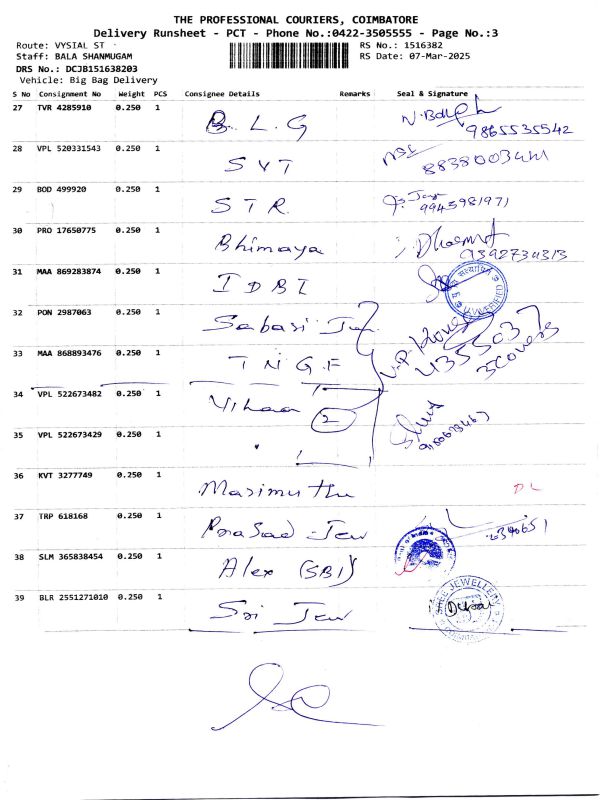 THE PROFESSIONAL COURIERS, COIMBATORE
Delivery Runsheet - PCT - Phone No.:0422-3505555 - Page No.:3
Route: VYSIAL ST
RS No.: 1516382
Staff: BALA SHANMUGAM
RS Date: 07-Mar-2025
DRS No.: DCJB151638203
Vehicle: Big Bag Delivery
S No Consignment No Weight PCS Consignee Details Remarks Seal & Signature
27 TVR 4285910 0.250 1 B. L. G
9865535542
28 VPL 520331543 0.250 1 S V T
29 BOD 499920 0.250 1 S T R
9945981971
30 PRO 17650775 0.250 1 Bhimaya
9392734313
31 MAA 869283874 0.250 1 I D B I
32 PON 2987063 0.250 1 Sabasi Jew
33 MAA 868893476 0.250 1 T N G F
435503
3 Covers
34 VPL 522673482 0.250 1 Vihaa 2
35 VPL 522673429 0.250 1
36 KVT 3277749 0.250 1 Masimuthu
DL
37 TRP 618168 0.250 1 Prasad Jew
38 SLM 365838454 0.250 1 Alex (SBI)
39 BLR 2551271010 0.250 1 Sri Jew
SHREE JEWELLERY